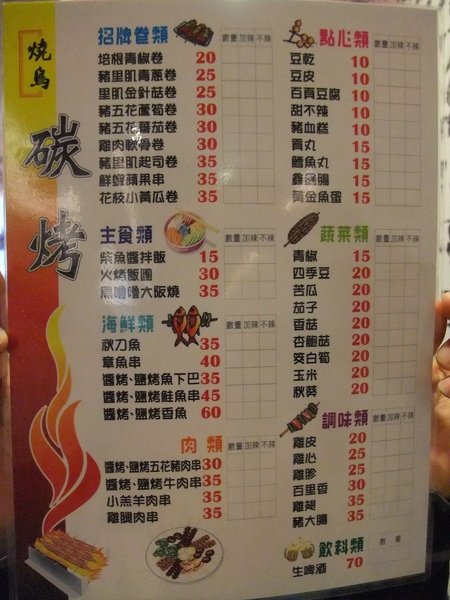 燒鳥
碳烤
招牌卷類 數量 加辣 不辣
培根青椒卷 20
豬里肌青蔥卷 25
里肌金針菇卷 25
豬五花蘆筍卷 30
豬五花蕃茄卷 30
雞肉軟骨卷 30
豬里肌起司卷 35
鮮蝦蘋果串 35
花枝小黃瓜卷 35
主食類 數量 加辣 不辣
柴魚醬拌飯 15
火烤飯糰 30
黑嚕嚕大阪燒 35
海鮮類 數量 加辣 不辣
秋刀魚 35
章魚串 40
醬烤、鹽烤魚下巴 35
醬烤、鹽烤鮭魚串 45
醬烤、鹽烤香魚 60
肉類 數量 加辣 不辣
醬烤、鹽烤五花豬肉串 30
醬烤、鹽烤牛肉串 35
小羔羊肉串 35
雞腿肉串 35
點心類 數量 加辣 不辣
豆乾 10
豆皮 10
百頁豆腐 10
甜不辣 10
豬血糕 10
貢丸 10
鱈魚丸 15
鑫鑫腸 15
黃金魚蛋 15
蔬菜類 數量 加辣 不辣
青椒 15
四季豆 20
苦瓜 20
茄子 20
香菇 20
杏鮑菇 20
筊白筍 20
玉米 20
秋葵 20
調味類 數量 加辣 不辣
雞皮 20
雞心 25
雞胗 25
百里香 30
雞翅 35
豬大腸 35
飲料類 數量
生啤酒 70